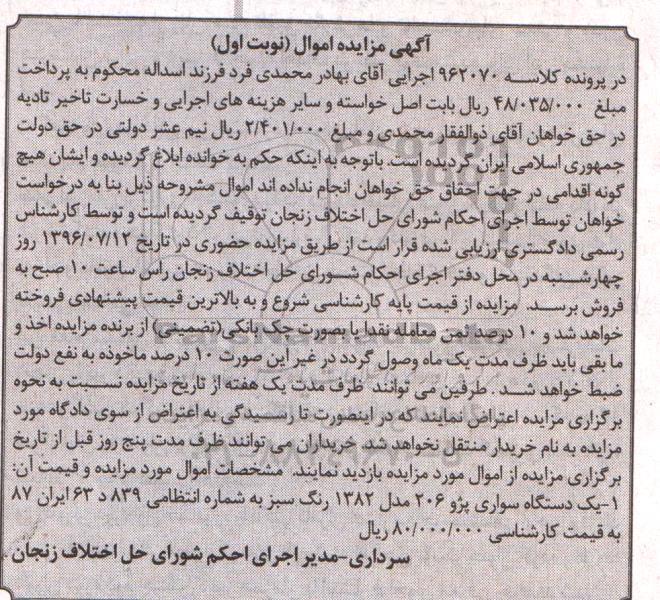 آگهی مزایده اموال (نوبت اول)
در پرونده کلاسه ۹۶۲۰۷۰ اجرایی آقای بهادر محمدی فرد فرزند اسداله محکوم به پرداخت
مبلغ ۴۸/۰۳۵/۰۰۰ ریال بابت اصل خواسته و سایر هزینه های اجرایی و خسارت تاخیر تادیه
در حق خواهان آقای ذوالفقار محمدی و مبلغ ۲/۴۰۱/۰۰۰ ریال نیم عشر دولتی در حق دولت
جمهوری اسلامی ایران گردیده است. باتوجه به اینکه حکم به خوانده ابلاغ گردیده و ایشان هیچ
گونه اقدامی در جهت احقاق حق خواهان انجام نداده اند اموال مشروحه ذیل بنا به درخواست
خواهان توسط اجرای احکام شورای حل اختلاف زنجان توقیف گردیده است و توسط کارشناس
رسمی دادگستری ارزیابی شده قرار است از طریق مزایده حضوری در تاریخ ۱۳۹۶/۰۷/۱۲ روز
چهارشنبه در محل دفتر اجرای احکام شورای حل اختلاف زنجان راس ساعت ۱۰ صبح به
فروش برسد. مزایده از قیمت پایه کارشناسی شروع و به بالاترین قیمت پیشنهادی فروخته
خواهد شد و ۱۰ درصد ثمن معامله نقدا یا بصورت چک بانکی(تضمینی) از برنده مزایده اخذ و
ما بقی باید ظرف مدت یک ماه وصول گردد در غیر این صورت ۱۰ درصد ماخوذه به نفع دولت
ضبط خواهد شد. طرفین می توانند ظرف مدت یک هفته از تاریخ مزایده نسبت به نحوه
برگزاری مزایده اعتراض نمایند که در اینصورت تا رسیدگی به اعتراض از سوی دادگاه مورد
مزایده به نام خریدار منتقل نخواهد شد. خریداران می توانند ظرف مدت پنج روز قبل از تاریخ
برگزاری مزایده از اموال مورد مزایده بازدید نمایند. مشخصات اموال مورد مزایده و قیمت آن:
۱-یک دستگاه سواری پژو ۲۰۶ مدل ۱۳۸۲ رنگ سبز به شماره انتظامی ۸۳۹ د ۶۳ ایران ۸۷
به قیمت کارشناسی ۸۰/۰۰۰/۰۰۰ ریال
سرداری-مدیر اجرای احکم شورای حل اختلاف زنجان